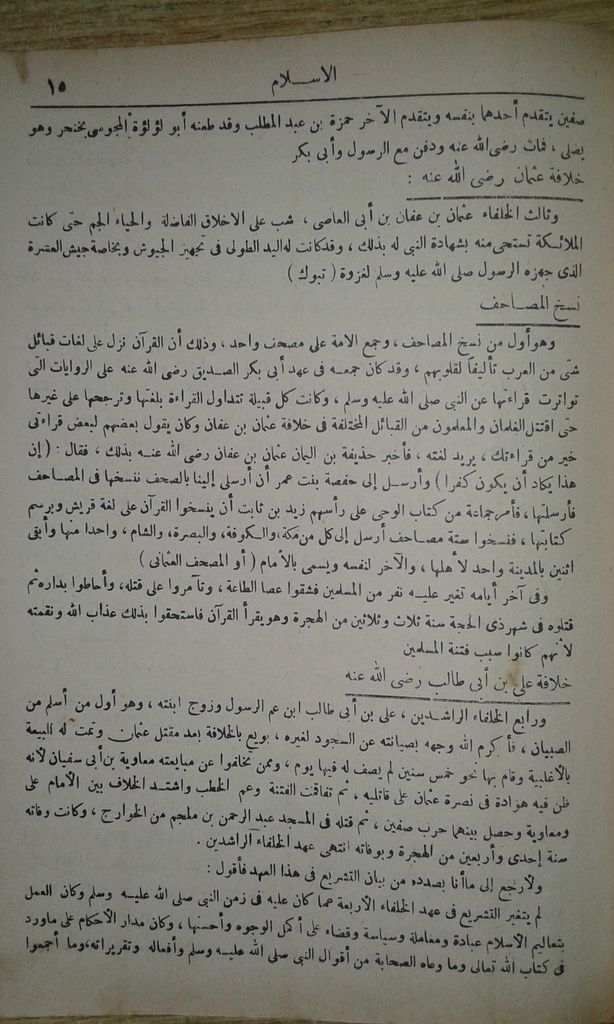 الاسلام
١٥
صفين يتقدم أحدهما بنفسه ويتقدم الآخر حمزة بن عبد المطلب وقد طعنه أبو لؤلؤة المجوسى بخنجر وهو
يصلى ، فمات رضى الله عنه ودفن مع الرسول وأبى بكر
خلافة عثمان رضى الله عنه :
وثالث الخلفاء عثمان بن عفان بن أبى العاصى ، شب على الاخلاق الفاضلة والحياء الجم حتى كانت
الملائكة تستحى منه بشهادة النبى له بذلك ، وقد كانت له اليد الطولى فى تجهيز الجيوش وبخاصة جيش العسرة
الذى جهزه الرسول صلى الله عليه وسلم لغزوة ( تبوك )
نسخ المصاحف
وهو أول من نسخ المصاحف ، وجمع الامة على مصحف واحد ، وذلك أن القرآن نزل على لغات قبائل
شتى من العرب تأليفاً لقلوبهم ، وقد كان جمعه فى عهد أبى بكر الصديق رضى الله عنه على الروايات التى
تواترت قراءتها عن النبى صلى الله عليه وسلم ، وكانت كل قبيلة تتداول القراءة بلغتها وترجحها على غيرها
حتى اقتتل الغلمان والمعلمون من القبائل المختلفة فى خلافة عثمان بن عفان وكان يقول بعضهم لبعض قراءتى
خير من قراءتك ، يريد لغته ، فأخبر حذيفة بن اليمان عثمان بن عفان رضى الله عنه بذلك ، فقال : ( إن
هذا يكاد أن يكون كفرا ) وأرسل إلى حفصة بنت عمر أن أرسلى إلينا بالصحف ننسخها فى المصاحف
فأرسلتها ، فأمر جماعة من كتاب الوحى على رأسهم زيد بن ثابت أن ينسخوا القرآن على لغة قريش وبرسم
كتابتها ، فنسخوا ستة مصاحف أرسل إلى كل من مكة، والكوفة، والبصرة، والشام ، واحدا منها وأبقى
اثنين بالمدينة واحد لأهلها ، والآخر لنفسه ويسمى بالأمام ( أو المصحف العثمانى )
وفى آخر أيامه تغير عليه نفر من المسلمين فشقوا عصا الطاعة ، وتآمروا على قتله، وأحاطوا بداره ثم
قتلوه فى شهر ذى الحجة سنة ثلاث وثلاثين من الهجرة وهو يقرأ القرآن فاستحقوا بذلك عذاب الله ونقمته
لأنهم كانوا سبب فتنة المسلمين
خلافة على بن أبى طالب رضى الله عنه
ورابع الخلفاء الراشدين ، على بن أبى طالب ابن عم الرسول وزوج ابنته ، وهو أول من أسلم من
الصبيان ، فأكرم الله وجهه بصيانته عن السجود لغيره ، بويع بالخلافة بعد مقتل عثمان وتمت له البيعة
بالأغلبية وقام بها نحو خمس سنين لم يصف له فيها يوم ، وممن تخالفوا عن مبايعته معاوية بن أبى سفيان لأنه
ظن فيه هوادة فى نصرة عثمان على قاتليه ، ثم تفاقت الفتنة وعم الخطب واشتد الخلاف بين الأمام على
ومعاوية وحصل بينهما حرب صفين ، ثم قتله فى المسجد عبد الرحمن بن ملجم من الخوارج ، وكانت وفاته
سنة إحدى وأربعين من الهجرة وبوفاته انتهى عهد الخلفاء الراشدين .
ولأرجع إلى ما أنا بصدده من بيان التشريع فى هذا العهد فأقول :
لم يتغير التشريع فى عهد الخلفاء الأربعة عما كان عليه فى زمن النبى صلى الله عليه وسلم وكان العمل
بتعاليم الأسلام عبادة ومعاملة وسياسة وقضاء على أكمل الوجوه وأحسنها ، وكان مدار الأحكام على ماورد
فى كتاب الله تعالى وما وعاه الصحابة من أقوال النبى صلى الله عليه وسلم وأفعاله وتقريراته، وما أجمعوا